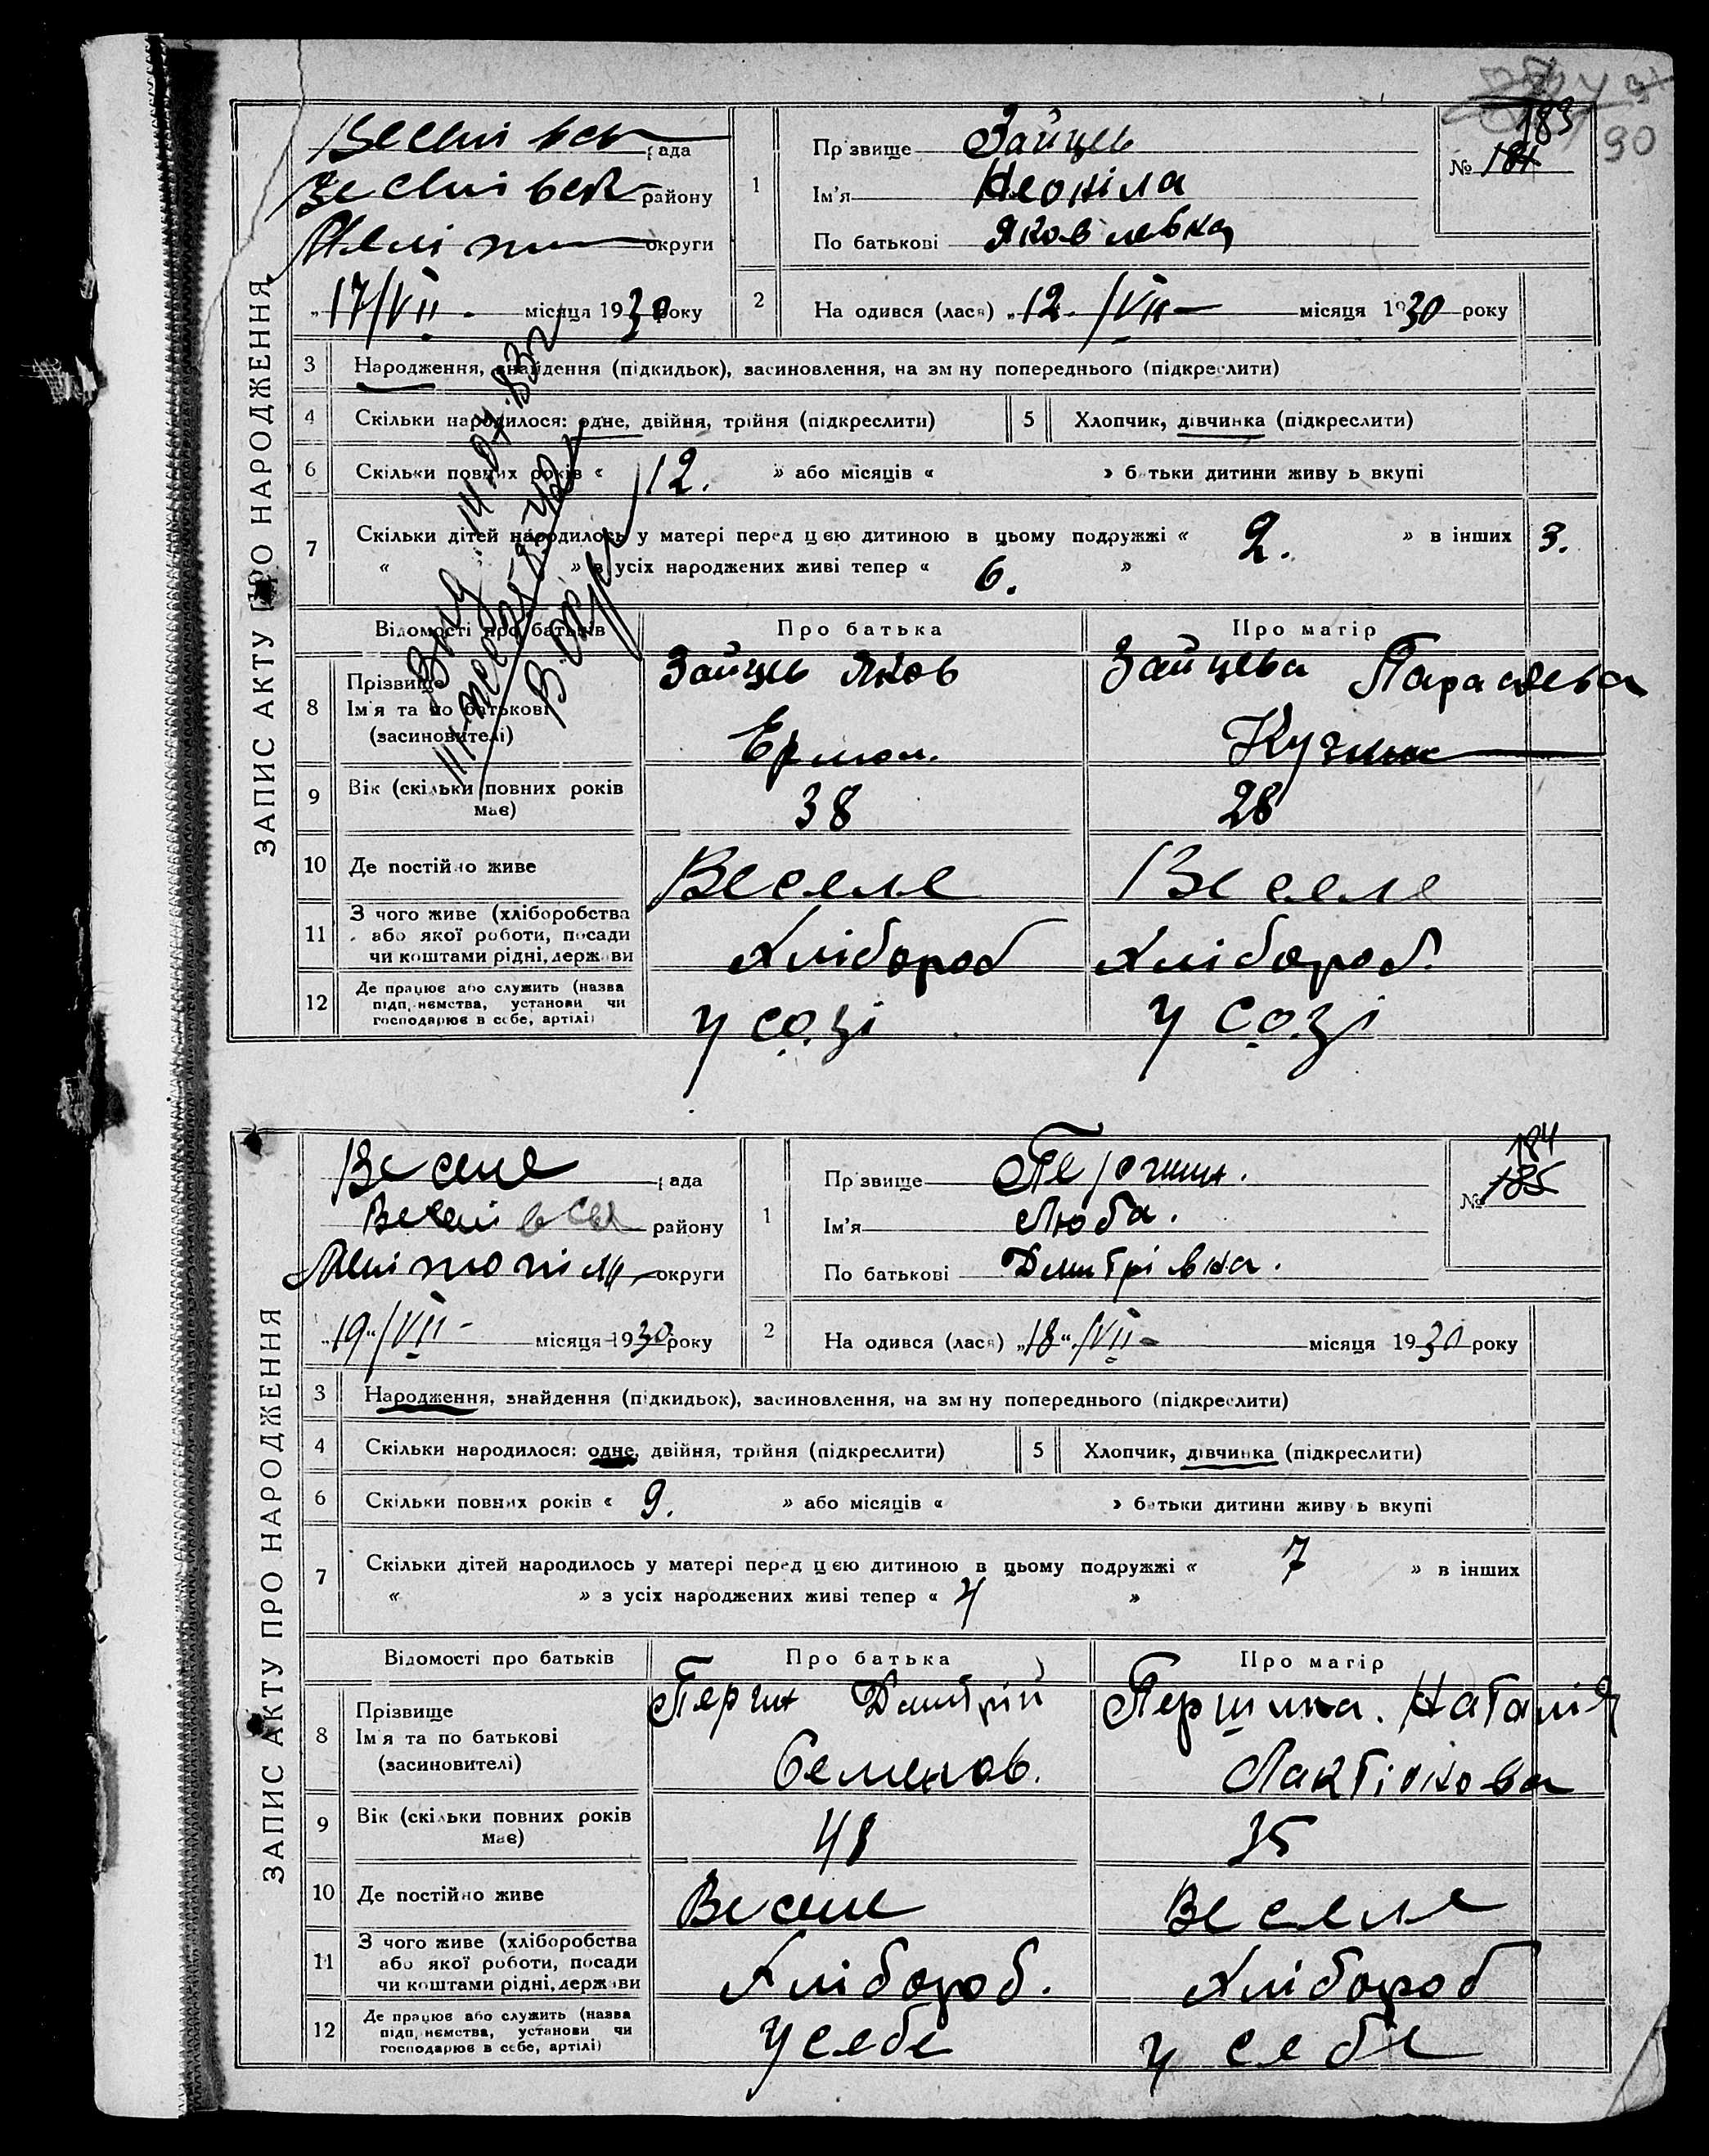 ЗАПИС АКТУ ПРО НАРОДЖЕННЯ
183
№ 184
90
рада
району
округи
„17/VII місяця 1930 року
1
Прізвище Зайцев
Ім'я Неоніла
По батькові Яковлевна
2
Народився (лася) „12 /VII місяця 1930 року
3 Народження, знайдення (підкидьок), засиновлення, на зміну попереднього (підкреслити)
4 Скільки народилося: одне, двійня, трійня (підкреслити)
5 Хлопчик, дівчинка (підкреслити)
6 Скільки повних років « 12. » або місяців « » батьки дитини живуть вкупі
7 Скільки дітей народилось у матері перед цією дитиною в цьому подружжі « 2. » в інших 3.
« » з усіх народжених живі тепер « 6. »
Відомості про батьків
Про батька
Про матір
8 Прізвище
Ім'я та по батькові
(засиновителі)
Зайцев Яков
Ермол.
Зайцева Параскева
9 Вік (скільки повних років має)
38
28
10 Де постійно живе
Веселе
Веселе
11 З чого живе (хліборобства
або якої роботи, посади
чи коштами рідні, держави
Хлібороб
Хлібороб.
12 Де працює або служить (назва
підприємства, установи чи
господарює в себе, артілі)
у созі
у созі
ЗАПИС АКТУ ПРО НАРОДЖЕННЯ
184
№ 185
Веселе рада
району
округи
„19"/VII місяця 1930 року
1
Прізвище
Ім'я Люба.
По батькові Дмитрівна.
2
Народився (лася) „18"/VII місяця 1930 року
3 Народження, знайдення (підкидьок), засиновлення, на зміну попереднього (підкреслити)
4 Скільки народилося: одне, двійня, трійня (підкреслити)
5 Хлопчик, дівчинка (підкреслити)
6 Скільки повних років « 9. » або місяців « » батьки дитини живуть вкупі
7 Скільки дітей народилось у матері перед цією дитиною в цьому подружжі « 7 » в інших
« » з усіх народжених живі тепер « 4 »
Відомості про батьків
Про батька
Про матір
8 Прізвище
Ім'я та по батькові
(засиновителі)
Дмитрій
Семенов.
Наталія
9 Вік (скільки повних років має)
48
35
10 Де постійно живе
Веселе
Веселе
11 З чого живе (хліборобства
або якої роботи, посади
чи коштами рідні, держави
Хлібороб.
Хлібороб
12 Де працює або служить (назва
підприємства, установи чи
господарює в себе, артілі)
у себе
у себе